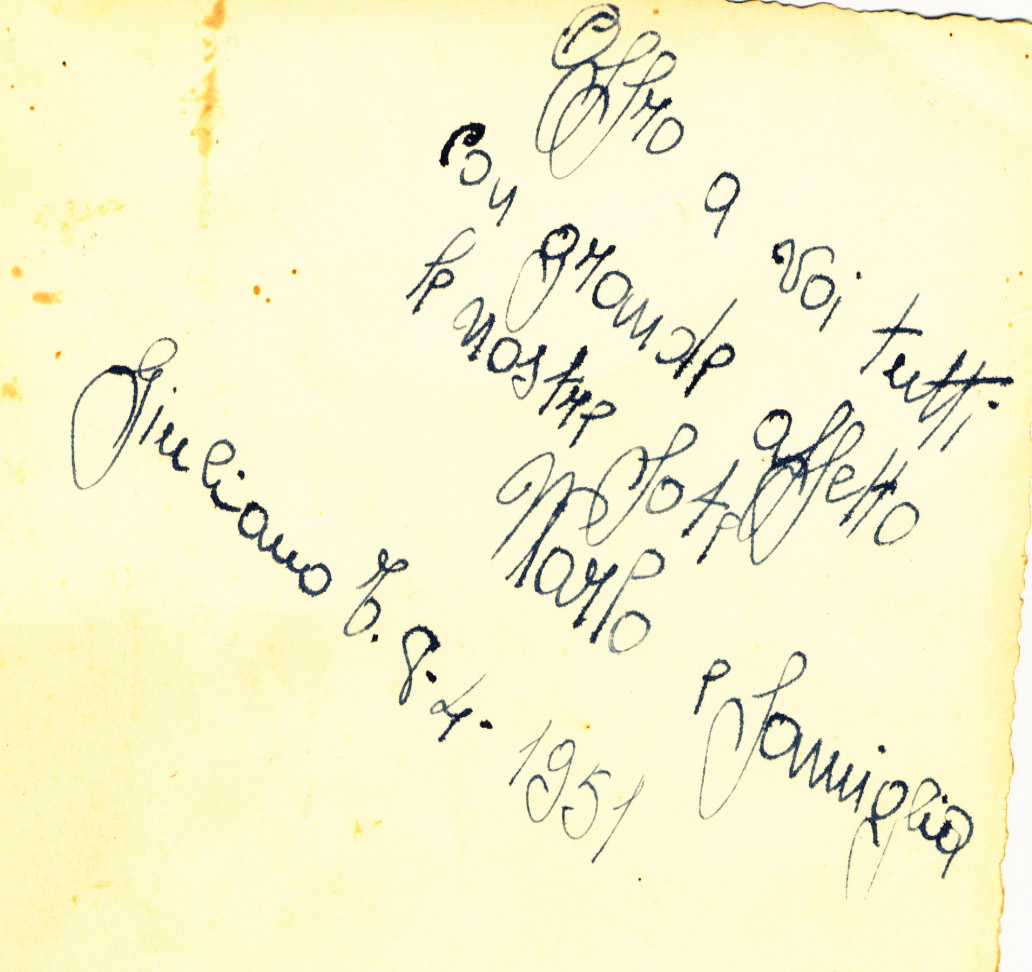 Offro a voi tutti
con grande affetto
le nostre foto
e famiglia
Giuliano T. 8.4.1951